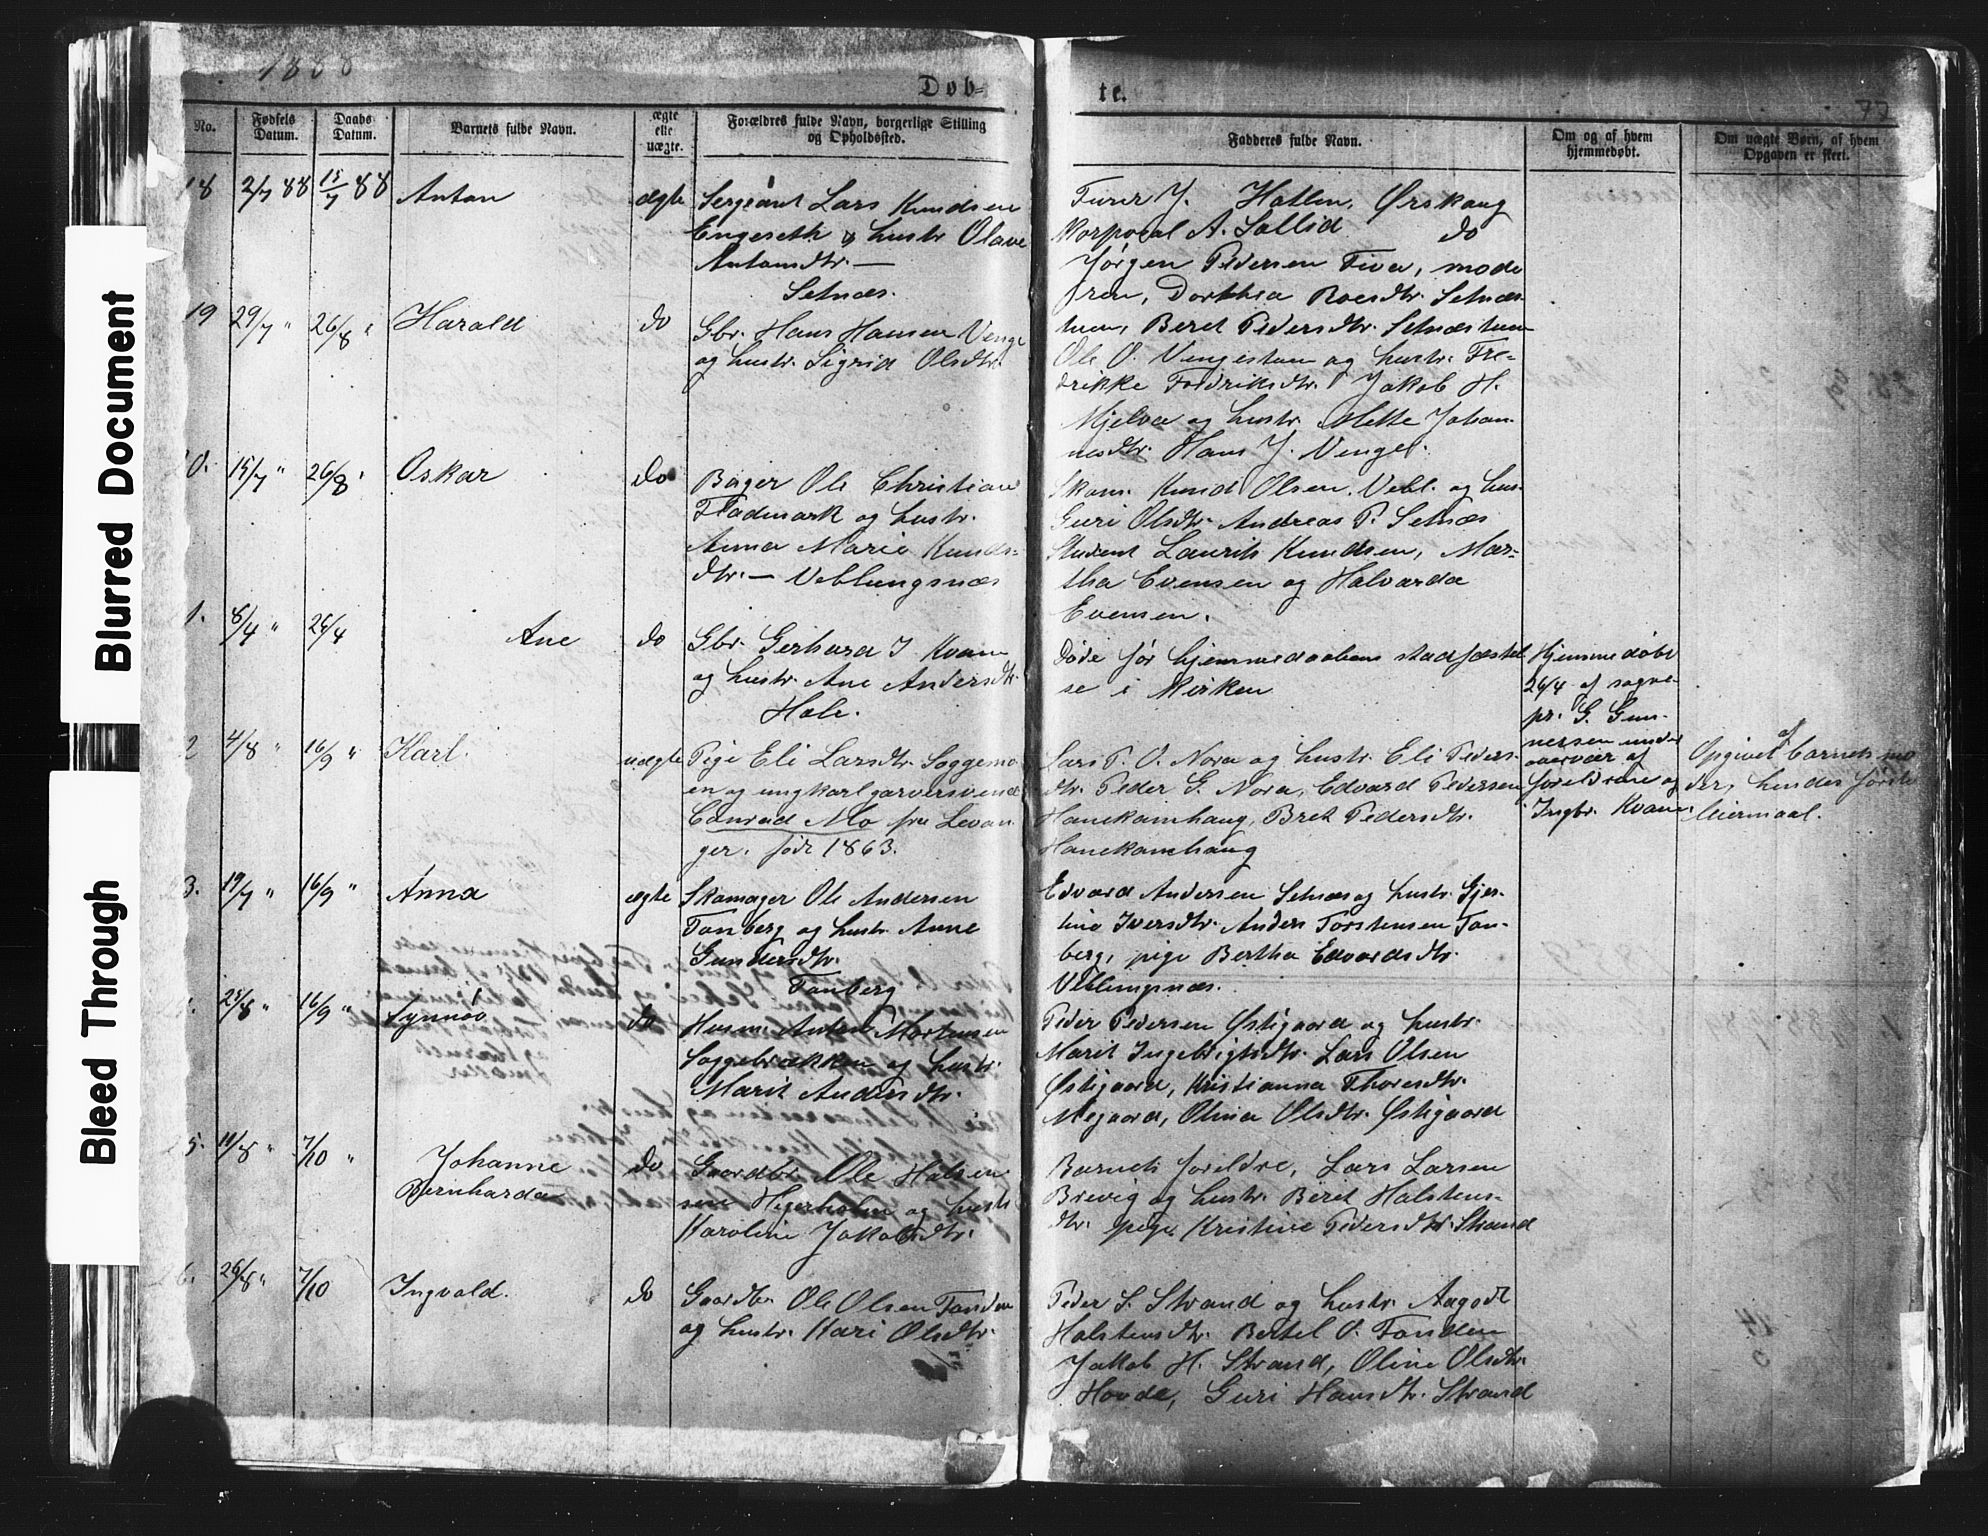 Blurred Document
Bleed Through
1888
Døb-
te.
77
No.
Fødsels Datum.
Daabs Datum.
Barnets fulde Navn.
ægte elle uægte.
Forældres fulde Navn, borgerlige Stilling og Opholdssted.
Fadderes fulde Navn.
Om og af hvem hjemmedøbt.
Om uægte Børn, af hvem Opgaven er skeet.
18 2/7 88 15/7 88 Anton ægte
Sergeant Lars Knudsen
Engeseth & hustr Olave
Antonsdtr. —
Setnæs.
Furer J. Hatlen, Ørskoug
Korporal A. Sollid do
Jørgen Pedersen Fiva, mode
ren, Dorthea Roesdtr. Setnæs
tuen, Beret Pedersdtr. Setnæstuen
19 29/7 " 26/8 " Harald do
Gbr. Hans Hansen Venge
og hustr. Sigrid Olsdtr.
Ole O. Vengestuen og hustr. Fre-
drikke Fredriksdtr. Jakob H.
Mjelva og hustr. Mette Johan-
nesdtr. Hans J. Venge.
0. 15/7 " 26/8 " Oskar do
Bager Ole Christian
Fladmark og hustr.
Anna Marie Knuds-
dtr. — Veblungsnæs
Skom. Knud Olsen. Vebl. og hus.
Guri Olsdtr. Andreas P. Setnæs
Student Laurits Knudsen, Mar-
tha Evensen og Halvarda
Evensen.
1. 8/4 " 26/4 Ane do
Gbr. Gerhard I Kvam
og hustr. Ane Andersdtr.
Hole.
Døde før hjemmedaabens stadfæstel
se i Kirken
Hjemmedøbt
26/4 af sogne-
pr. G. Gun-
nersen under
overvær af
foreldrene og
Ingbr. Kvam
2 4/8 " 16/9 " Karl. uægte
Pige Eli Larsdtr. Soggemo
en og ungkarl garversvend
Conrad Mo fra Levan
ger. født 1863.
Lars P. O. Nora og hustr. Eli Peders-
dtr. Peder G. Nora, Edvard Pedersen
Hanekamhaug, Bret Pedersdtr.
Hanekamhaug
Opgivet af barnets mo
der, hendes første
leiermaal.
3. 19/7 " 16/9 " Anna ægte
Skomager Ole Andersen
Tonberg og hustr. Anne
Gundersdtr.
Tonberg
Edvard Andersen Setnæs og hustr. Gjer-
tine Iversdtr. Anders Torstensen Ton-
berg, pige Bertha Edvardsdtr.
Veblungsnæs.
25/8 " 16/9 " Synnøv do
Husm. Anton Mortensen
Soggebrækken og hustr.
Marit Andersdtr.
Peder Pedersen Østigaard og hustr.
Marit Ingebrigtsdtr. Lars Olsen
Østigaard, Kristianna Thoresdtr.
Megaard, Olina Olsdtr. Østigaard
5. 11/8 " 7/10 " Johanne
Bernharda do
Gaardbr. Ole Halsten
sen Hejerholm og hustr
Karoline Jakobsdtr.
Barnets foreldre, Lars Larsen
Brevig og hustr. Berit Halstens-
dtr. pige Kristine Pedersdtr. Strand
26. 26/8 " 7/10 Ingvald. do
Gaardbr. Ole Olsen Tonden
og hustr. Kari Olsdtr.
Peder S. Strand og hustr. Aagodt
Halstensdtr. Bertel O. Tonden
Jakob H. Strand, Oline Olsdtr.
Hovde, Guri Hansdtr. Strand